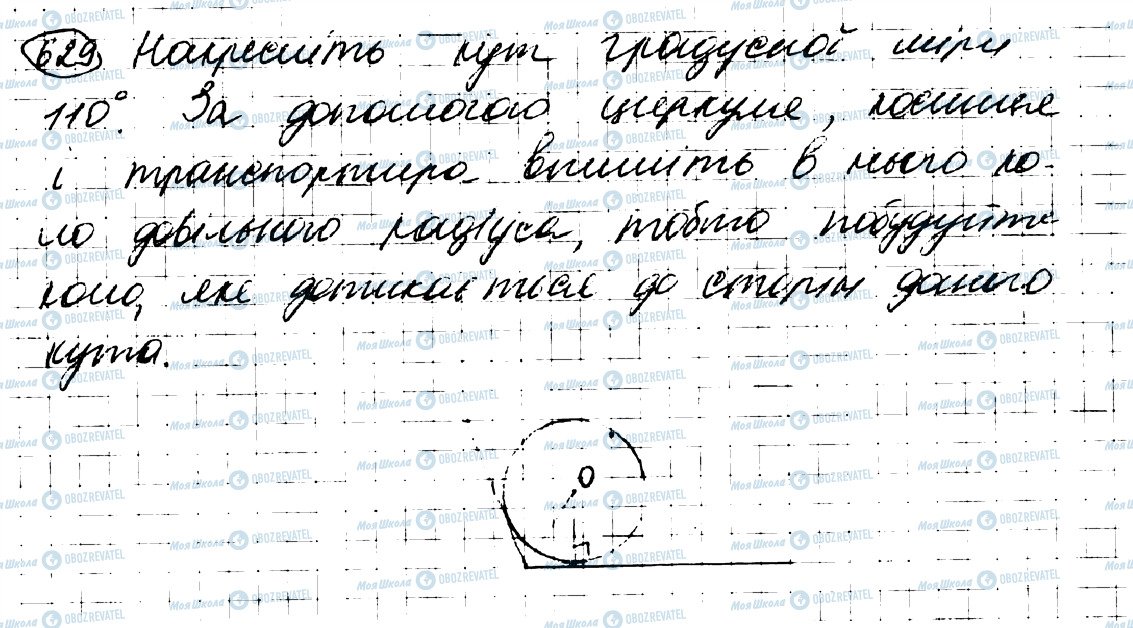 629 Накресліть кут градусної міри
110°. За допомогою циркуля, косинця
і транспортира впишіть в нього ко-
ло довільного радіуса, тобто побудуйте
коло, яке дотикається до сторін даного
кута.
O